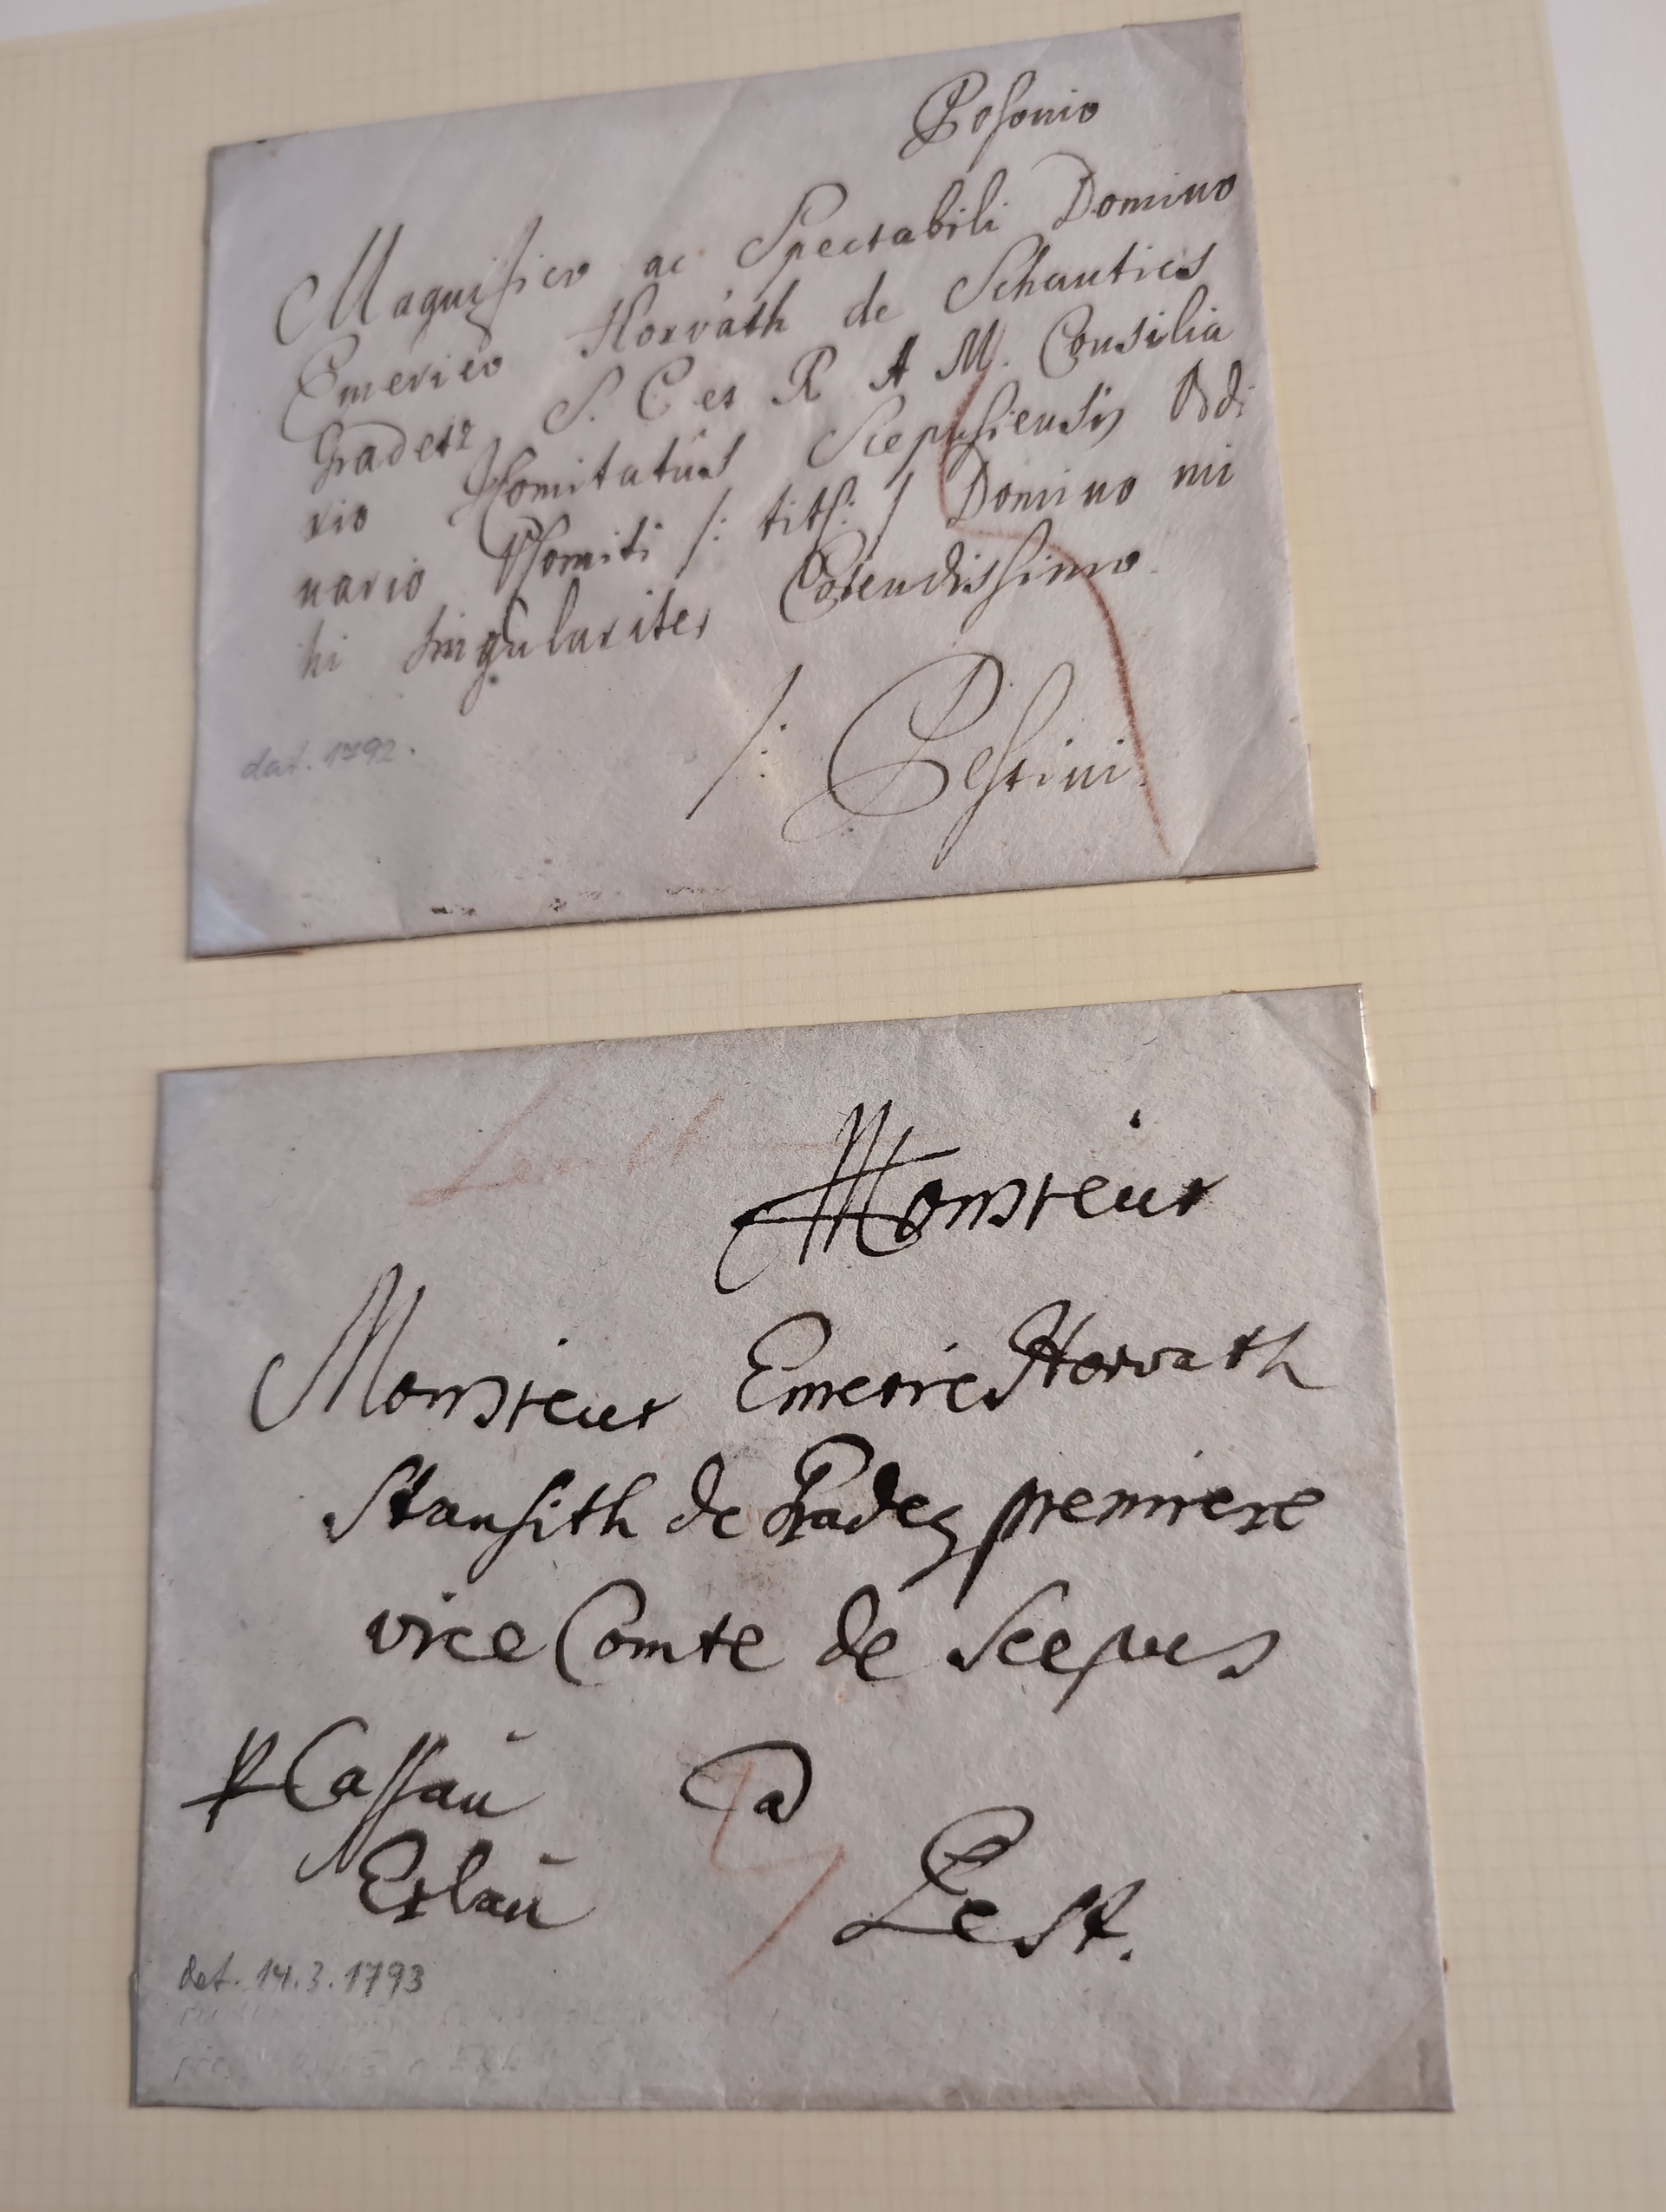 Posonio
Magnifico ac Spectabili Domino
Emerico Horváth de Schantics
Gradetz S. C et R A M. Consilia
rio Comitatûs Scepusiensis Ordi
nario VComiti /: titl: / Domino mi
hi singulariter Colendissimo.
/: Pestini
dat. 1792.
Monsieur
Monsieur Emeric Horvath
Stansith de Gradez premiere
vice Comte de Scepus
p Cassaŭ a
Erlaŭ Pest.
dat. 14.3.1793